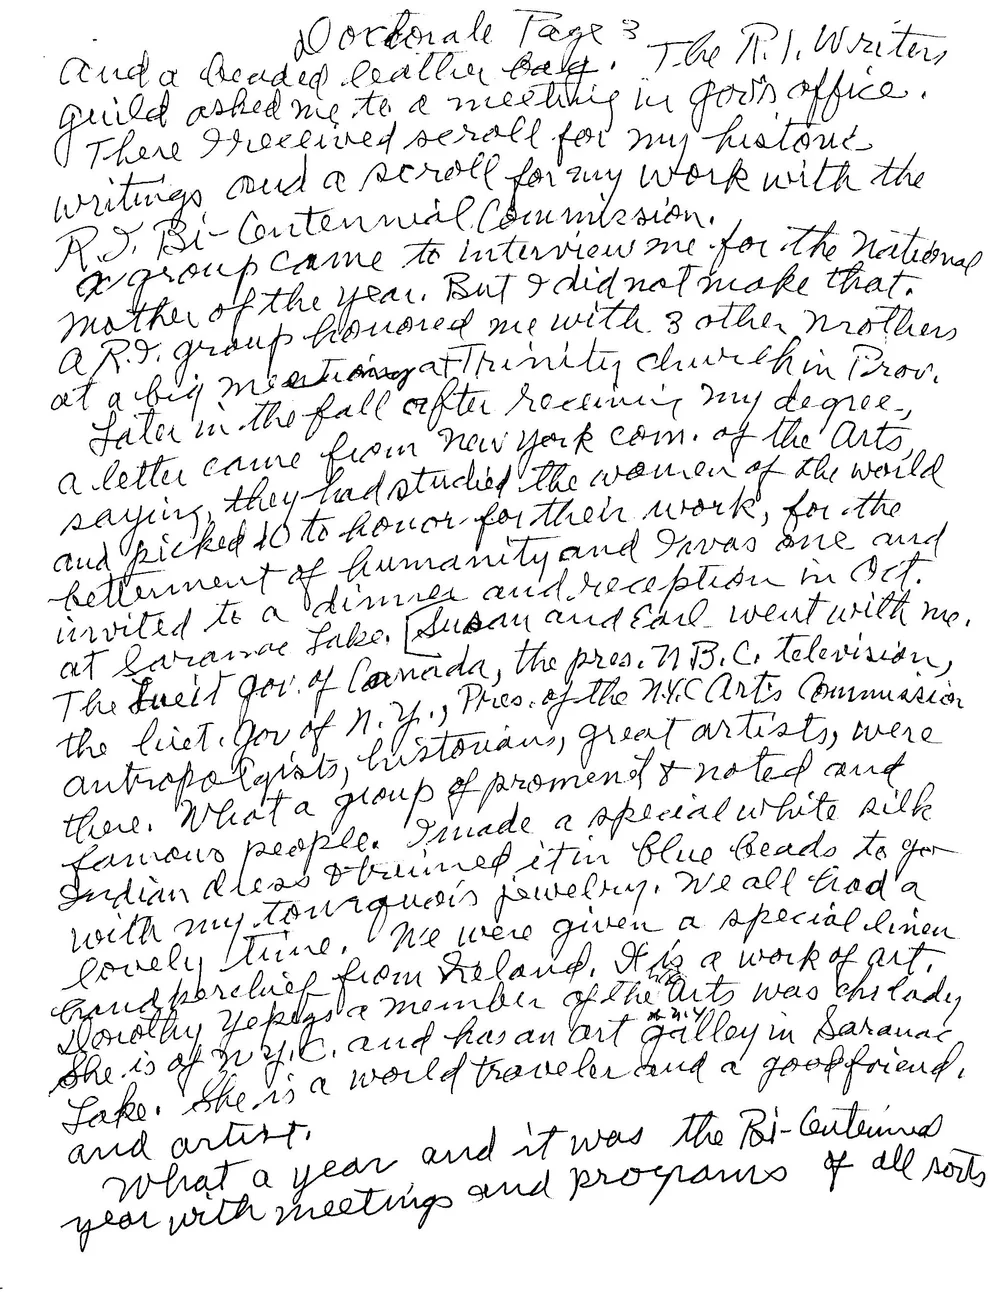 Doctorale Page 3
and a beaded leather bag. The R.I. Writers
guild asked me to a meeting in gov's office.
There I received scroll for my historic
writings and a scroll for my work with the
R.I. Bi-Centennial Commission.
A group came to interview me for the national
mother of the year. But I did not make that.
A R.I. group honored me with 3 other Mothers
at a big meeting at Trinity church in Prov.
Later in the fall after receiving my degree,
a letter came from New York com. of the Arts
saying, they had studied the women of the world
and picked 10 to honor for their work, for the
betterment of humanity and I was one and
invited to a dinner and reception in Oct.
at Saranac Lake. [Susan and Earl went with me.
The Lueit gov. of Canada, the pres. N.B.C. television,
the liut. gov of N.Y., Pres. of the N.Y.C Arts Commission
antropolgists, historians, great artists, were
there. What a group of promend & noted and
famous people. I made a special white silk
Indian dress & trimed it in blue beads to go
with my tourquois jewelry. We all had a
lovely time. We were given a special linen
handkerchief from Ireland. It is a work of art.
Dorothy a member of the Arts was lady
She is of N.Y.C. and has an art galley in Saranac
Lake. She is a world traveler and a good friend,
and artist.
What a year and it was the Bi-Centennial
year with meetings and programs of all sorts